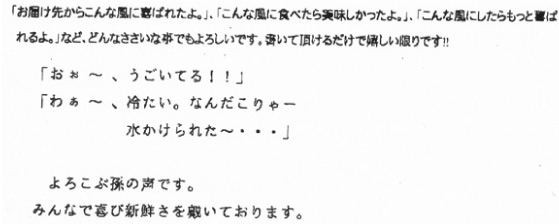 「お届け先からこんな風に喜ばれたよ。」、「こんな風に食べたら美味しかったよ。」、「こんな風にしたらもっと喜ば
れるよ。」など、どんなささいな事でもよろしいです。書いて頂けるだけで嬉しい限りです!!
「おぉ～、うごいてる！！」
「わぁ～、冷たい。なんだこりゃー
水かけられた～・・・」
よろこぶ孫の声です。
みんなで喜び新鮮さを戴いております。